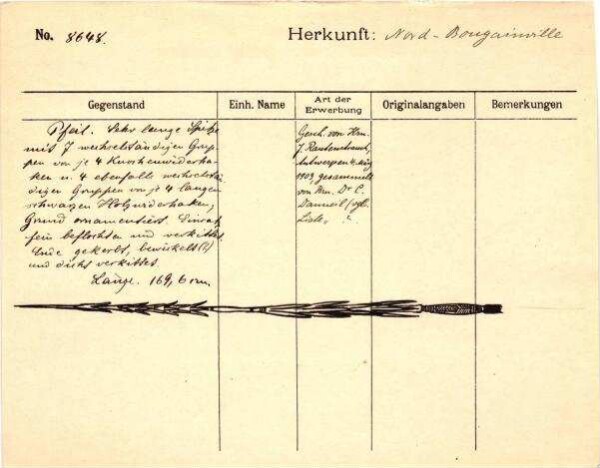 No. 8648. Herkunft: Nord-Bougainville
Gegenstand Einh. Name Art der Erwerbung Originalangaben Bemerkungen
Pfeil. Sehr lange Spitze
mit 7 wechselständigen Grup-
pen von je 4 Knochenwiderha-
ken u. 4 ebenfalls wechselstän-
digen Gruppen von je 4 langen
schwarzen Holzwiderhaken,
Grund ornamentiert.
fein beflochten und verkittet.
Ende gekerbt, bewickelt (?)
und dicht verkittet.
Länge. 169,6 cm.
Gesch. von Hrn.
J. Rautenstrauch,
Antwerpen 4. Aug.
1903, gesammelt
von Hrn. Dr. C.
Danneil /vgl.
Liste,